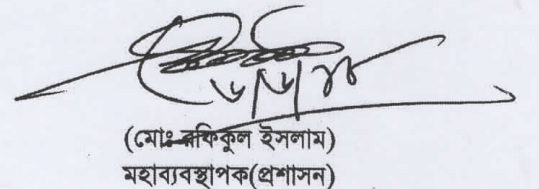 ৬/৬/১৮
(মোঃ রফিকুল ইসলাম)
মহাব্যবস্থাপক(প্রশাসন)